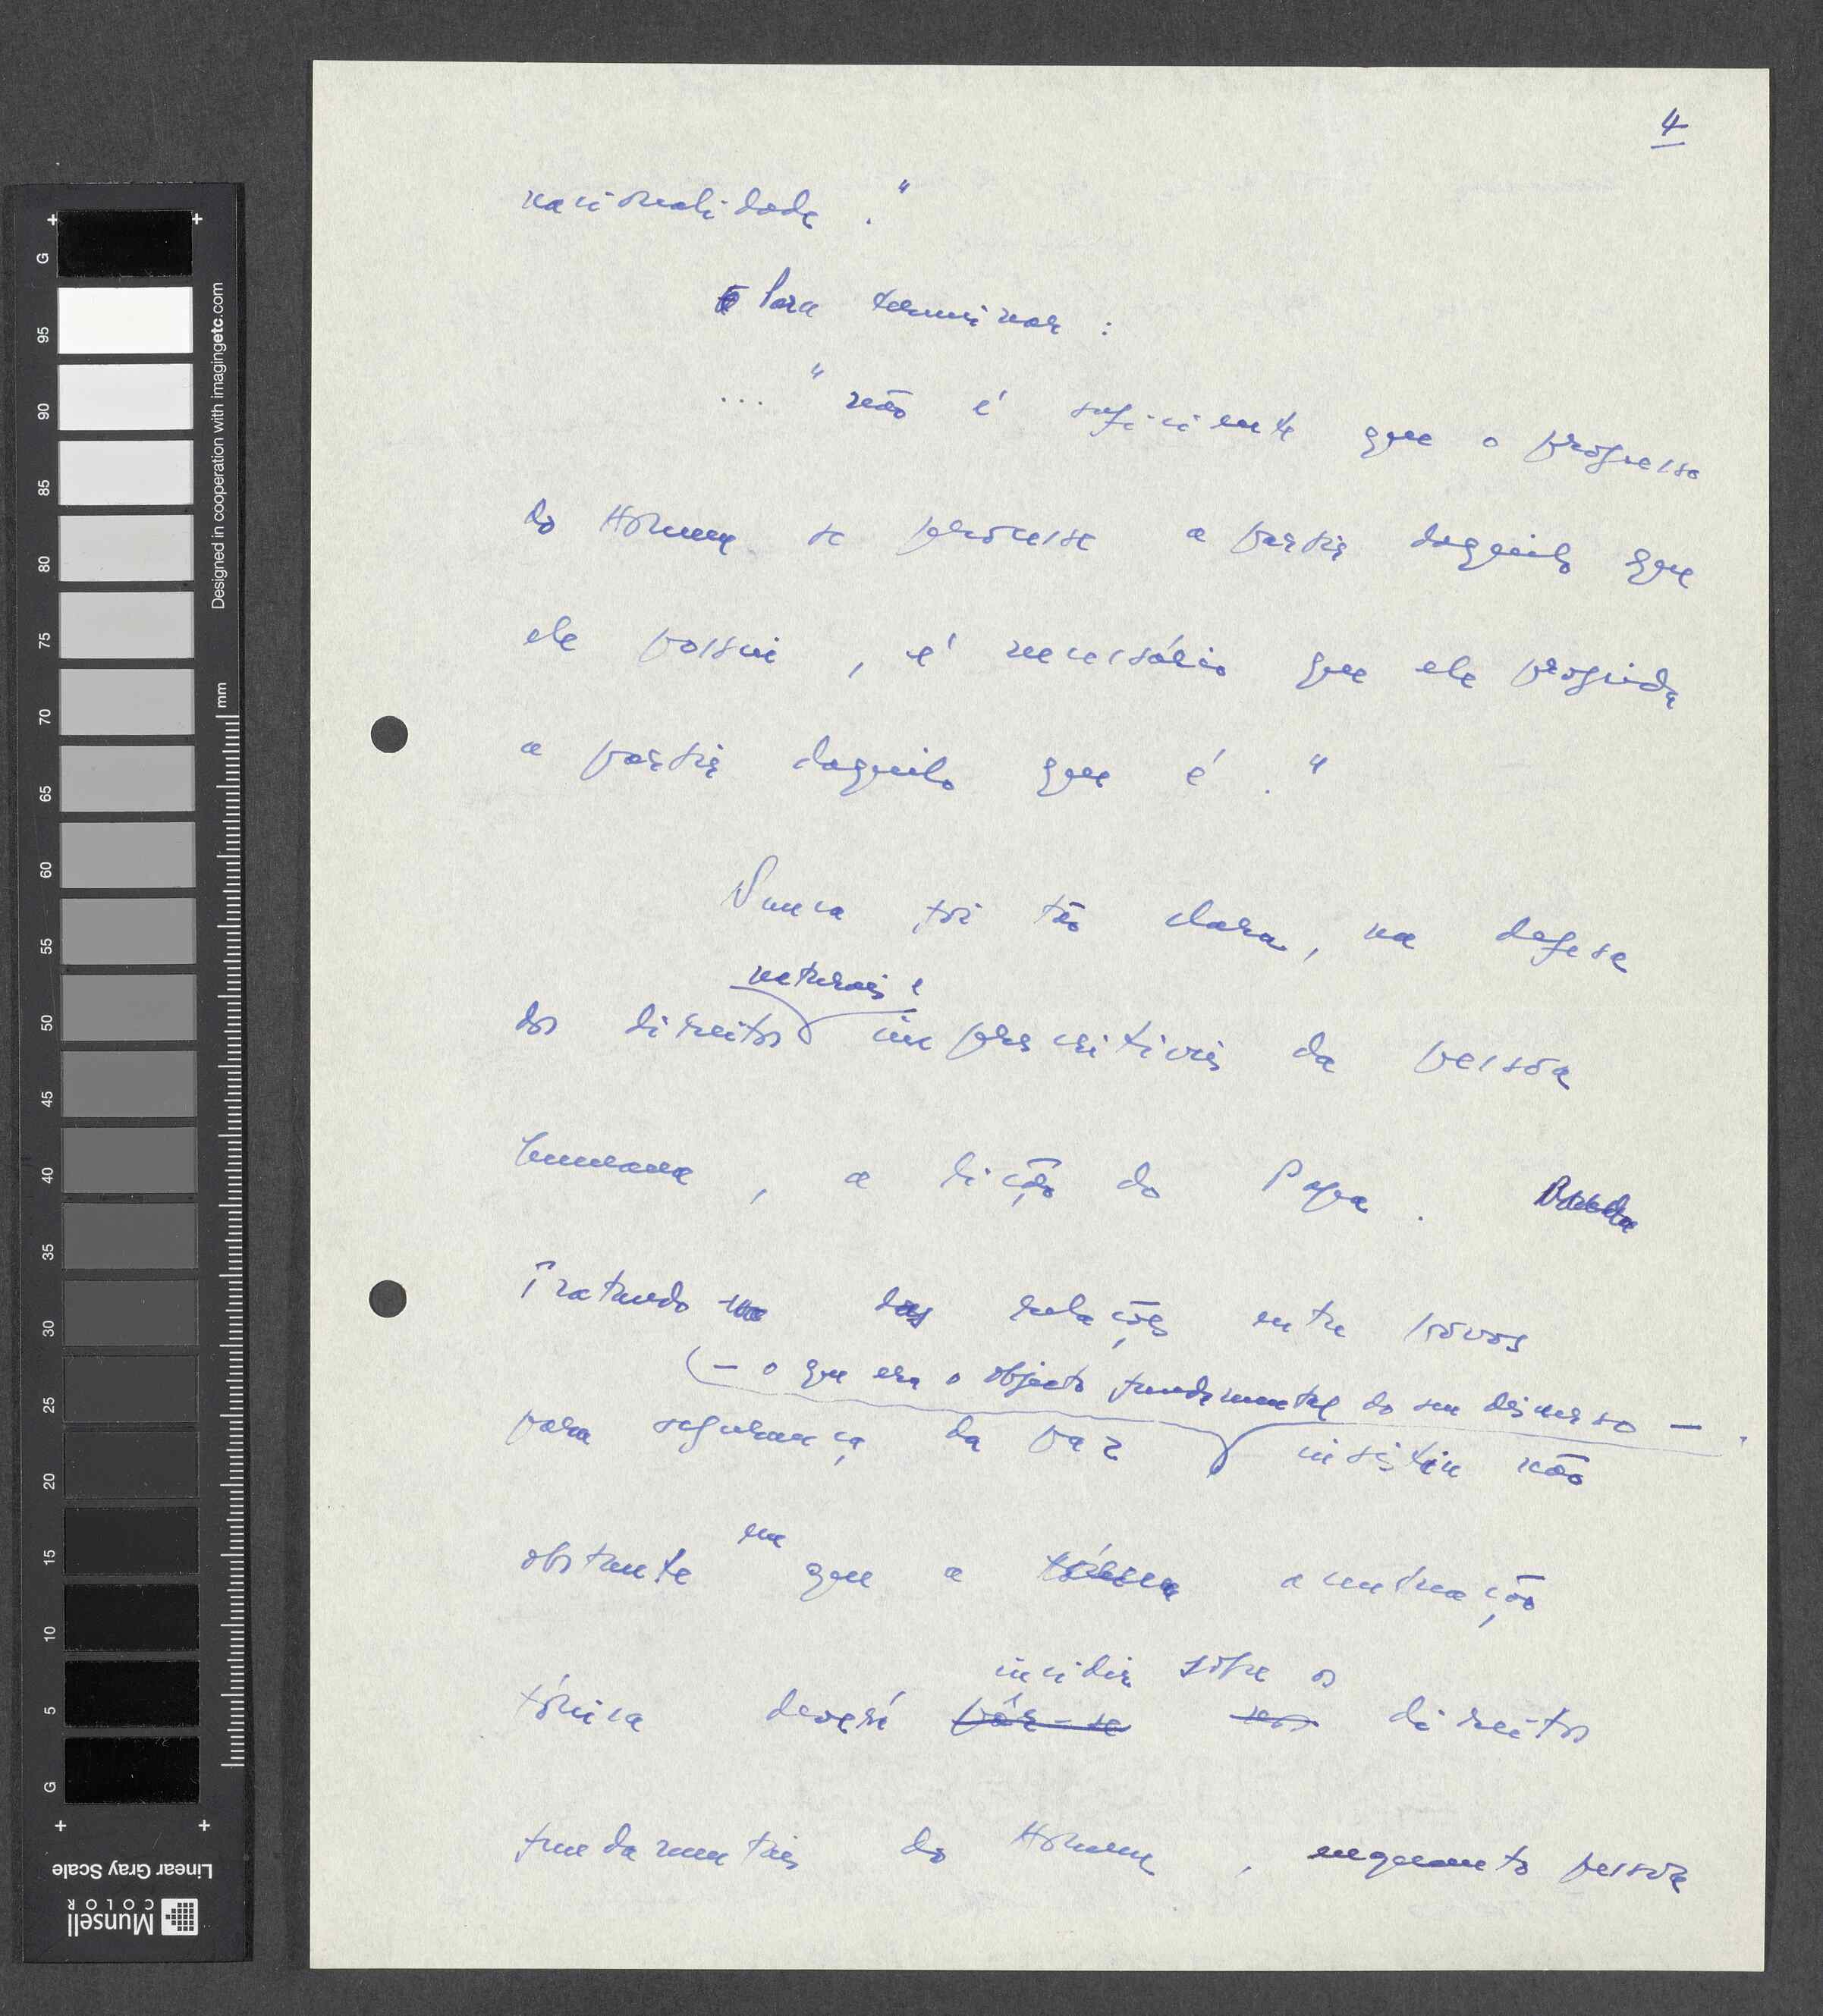 4
nacionalidade."
Para terminar:
... "não é suficiente que o progresso
do Homem se processe a partir daquilo que
ele possui, é necessário que ele progrida
a partir daquilo que é."
Nunca foi tão clara, na defesa
naturais e
dos direitos imprescritíveis da pessoa
humana, a lição do Papa.
Tratando das relações entre povos
(— o que era o objecto fundamental do seu discurso —
para segurança da paz insistiu não
obstante em que a tónica acentuação
incidir sobre os
tónica deverá pôr-se nos direitos
fundamentais do Homem, enquanto pessoa
G
95
90
85
80
75
70
65
60
55
50
45
40
35
30
25
20
15
10
5
G
Designed in cooperation with imagingetc.com
mm
Linear Gray Scale
Munsell
COLOR